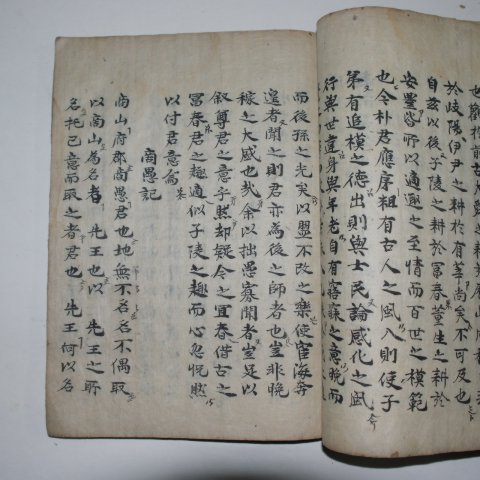 也觀
於岐陽伊尹之耕於有莘尚矣不可及也
自茲以後子陵之耕於富春董生之耕於
安豊皆所以適趣之至情而百世之模範
也今朴君應序粗有古人之風入則使子
弟有追模之德出則與士民論感化之風
行與世違身與年老自有寤寐之意晩而
而後孫之光矣以盟不改之樂使寉海李
達者聞之則君亦為後之師者也豈非晩
稼之大感也哉余以拙愚寡聞者豈足以
叙尊君之意乎然却疑今之宜春偕古之
富春君之趣適似子陵之趣而心忽怳然
以付君意
商愚記
商山府郡商愚君也地無不名名不偶取
以商山為名者先王也以先王之所
名托己意而取之者君也先王何以名